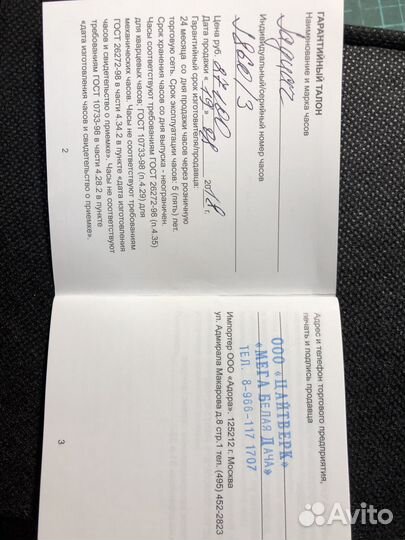 ГАРАНТИЙНЫЙ ТАЛОН
Наименование и марка часов
Индивидуальный/серийный номер часов
1860/3
Цена руб.
Дата продажи « 19 » 08 2018 г.
Гарантийный срок изготовителя/продавца:
24 месяца со дня продажи часов через розничную
торговую сеть. Срок эксплуатации часов: 5 (пять) лет.
Срок хранения часов со дня выпуска - неограничен.
Часы соответствуют требованиям ГОСТ 26272-98 (п.4.35)
для кварцевых часов; ГОСТ 10733-98 (п.4.29) для
механических часов. Часы не соответствуют требованиям
ГОСТ 26272-98 в части 4.34.2 в пункте «дата изготовления
часов и свидетельство о приемке». Часы не соответствуют
требованиям ГОСТ 10733-98 в части 4.28.2 в пункте
«дата изготовления часов и свидетельство о приемке».
2
Адрес и телефон торгового предприятия,
печать и подпись продавца
ООО «ЦАЙТВЕРК»
«МЕГА БЕЛАЯ ДАЧА»
ТЕЛ. 8-966-117 1707
Импортер ООО «Адора». 125212 г. Москва
ул. Адмирала Макарова д.8 стр.1 тел. (495) 452-2823
3
Avito